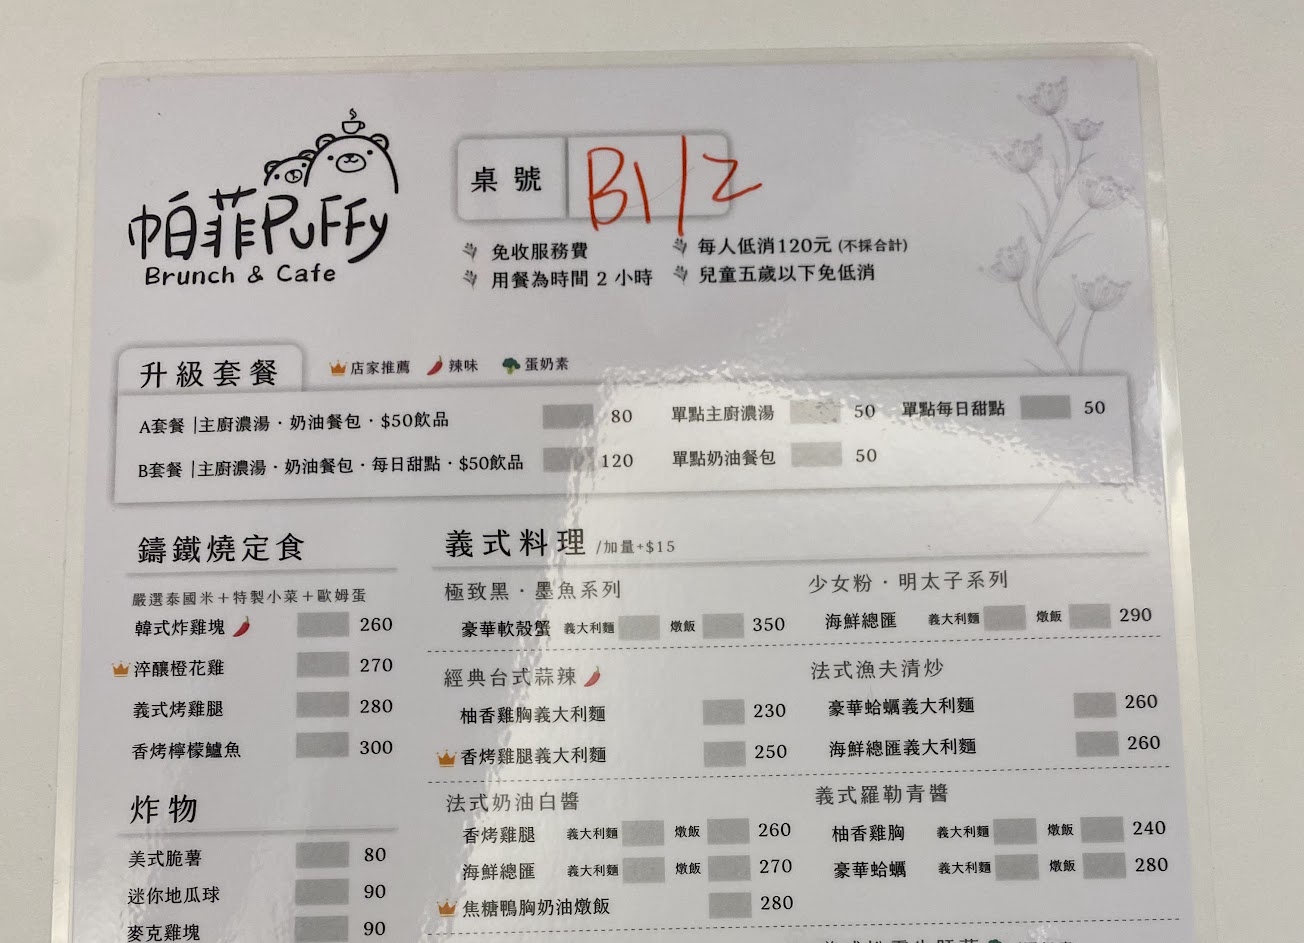 帕菲PUFFy
Brunch & Cafe
桌號 B1/2
免收服務費
每人低消120元 (不採合計)
用餐為時間 2 小時
兒童五歲以下免低消
升級套餐
店家推薦 辣味 蛋奶素
A套餐 |主廚濃湯・奶油餐包・$50飲品 80
單點主廚濃湯 50
單點每日甜點 50
B套餐 |主廚濃湯・奶油餐包・每日甜點・$50飲品 120
單點奶油餐包 50
鑄鐵燒定食
嚴選泰國米+特製小菜+歐姆蛋
韓式炸雞塊 260
淬釀橙花雞 270
義式烤雞腿 280
香烤檸檬鱸魚 300
炸物
美式脆薯 80
迷你地瓜球 90
麥克雞塊 90
義式料理 /加量+$15
極致黑・墨魚系列
豪華軟殼蟹 義大利麵 燉飯 350
經典台式蒜辣
柚香雞胸義大利麵 230
香烤雞腿義大利麵 250
法式奶油白醬
香烤雞腿 義大利麵 燉飯 260
海鮮總匯 義大利麵 燉飯 270
焦糖鴨胸奶油燉飯 280
少女粉・明太子系列
海鮮總匯 義大利麵 燉飯 290
法式漁夫清炒
豪華蛤蠣義大利麵 260
海鮮總匯義大利麵 260
義式羅勒青醬
柚香雞胸 義大利麵 燉飯 240
豪華蛤蠣 義大利麵 燉飯 280